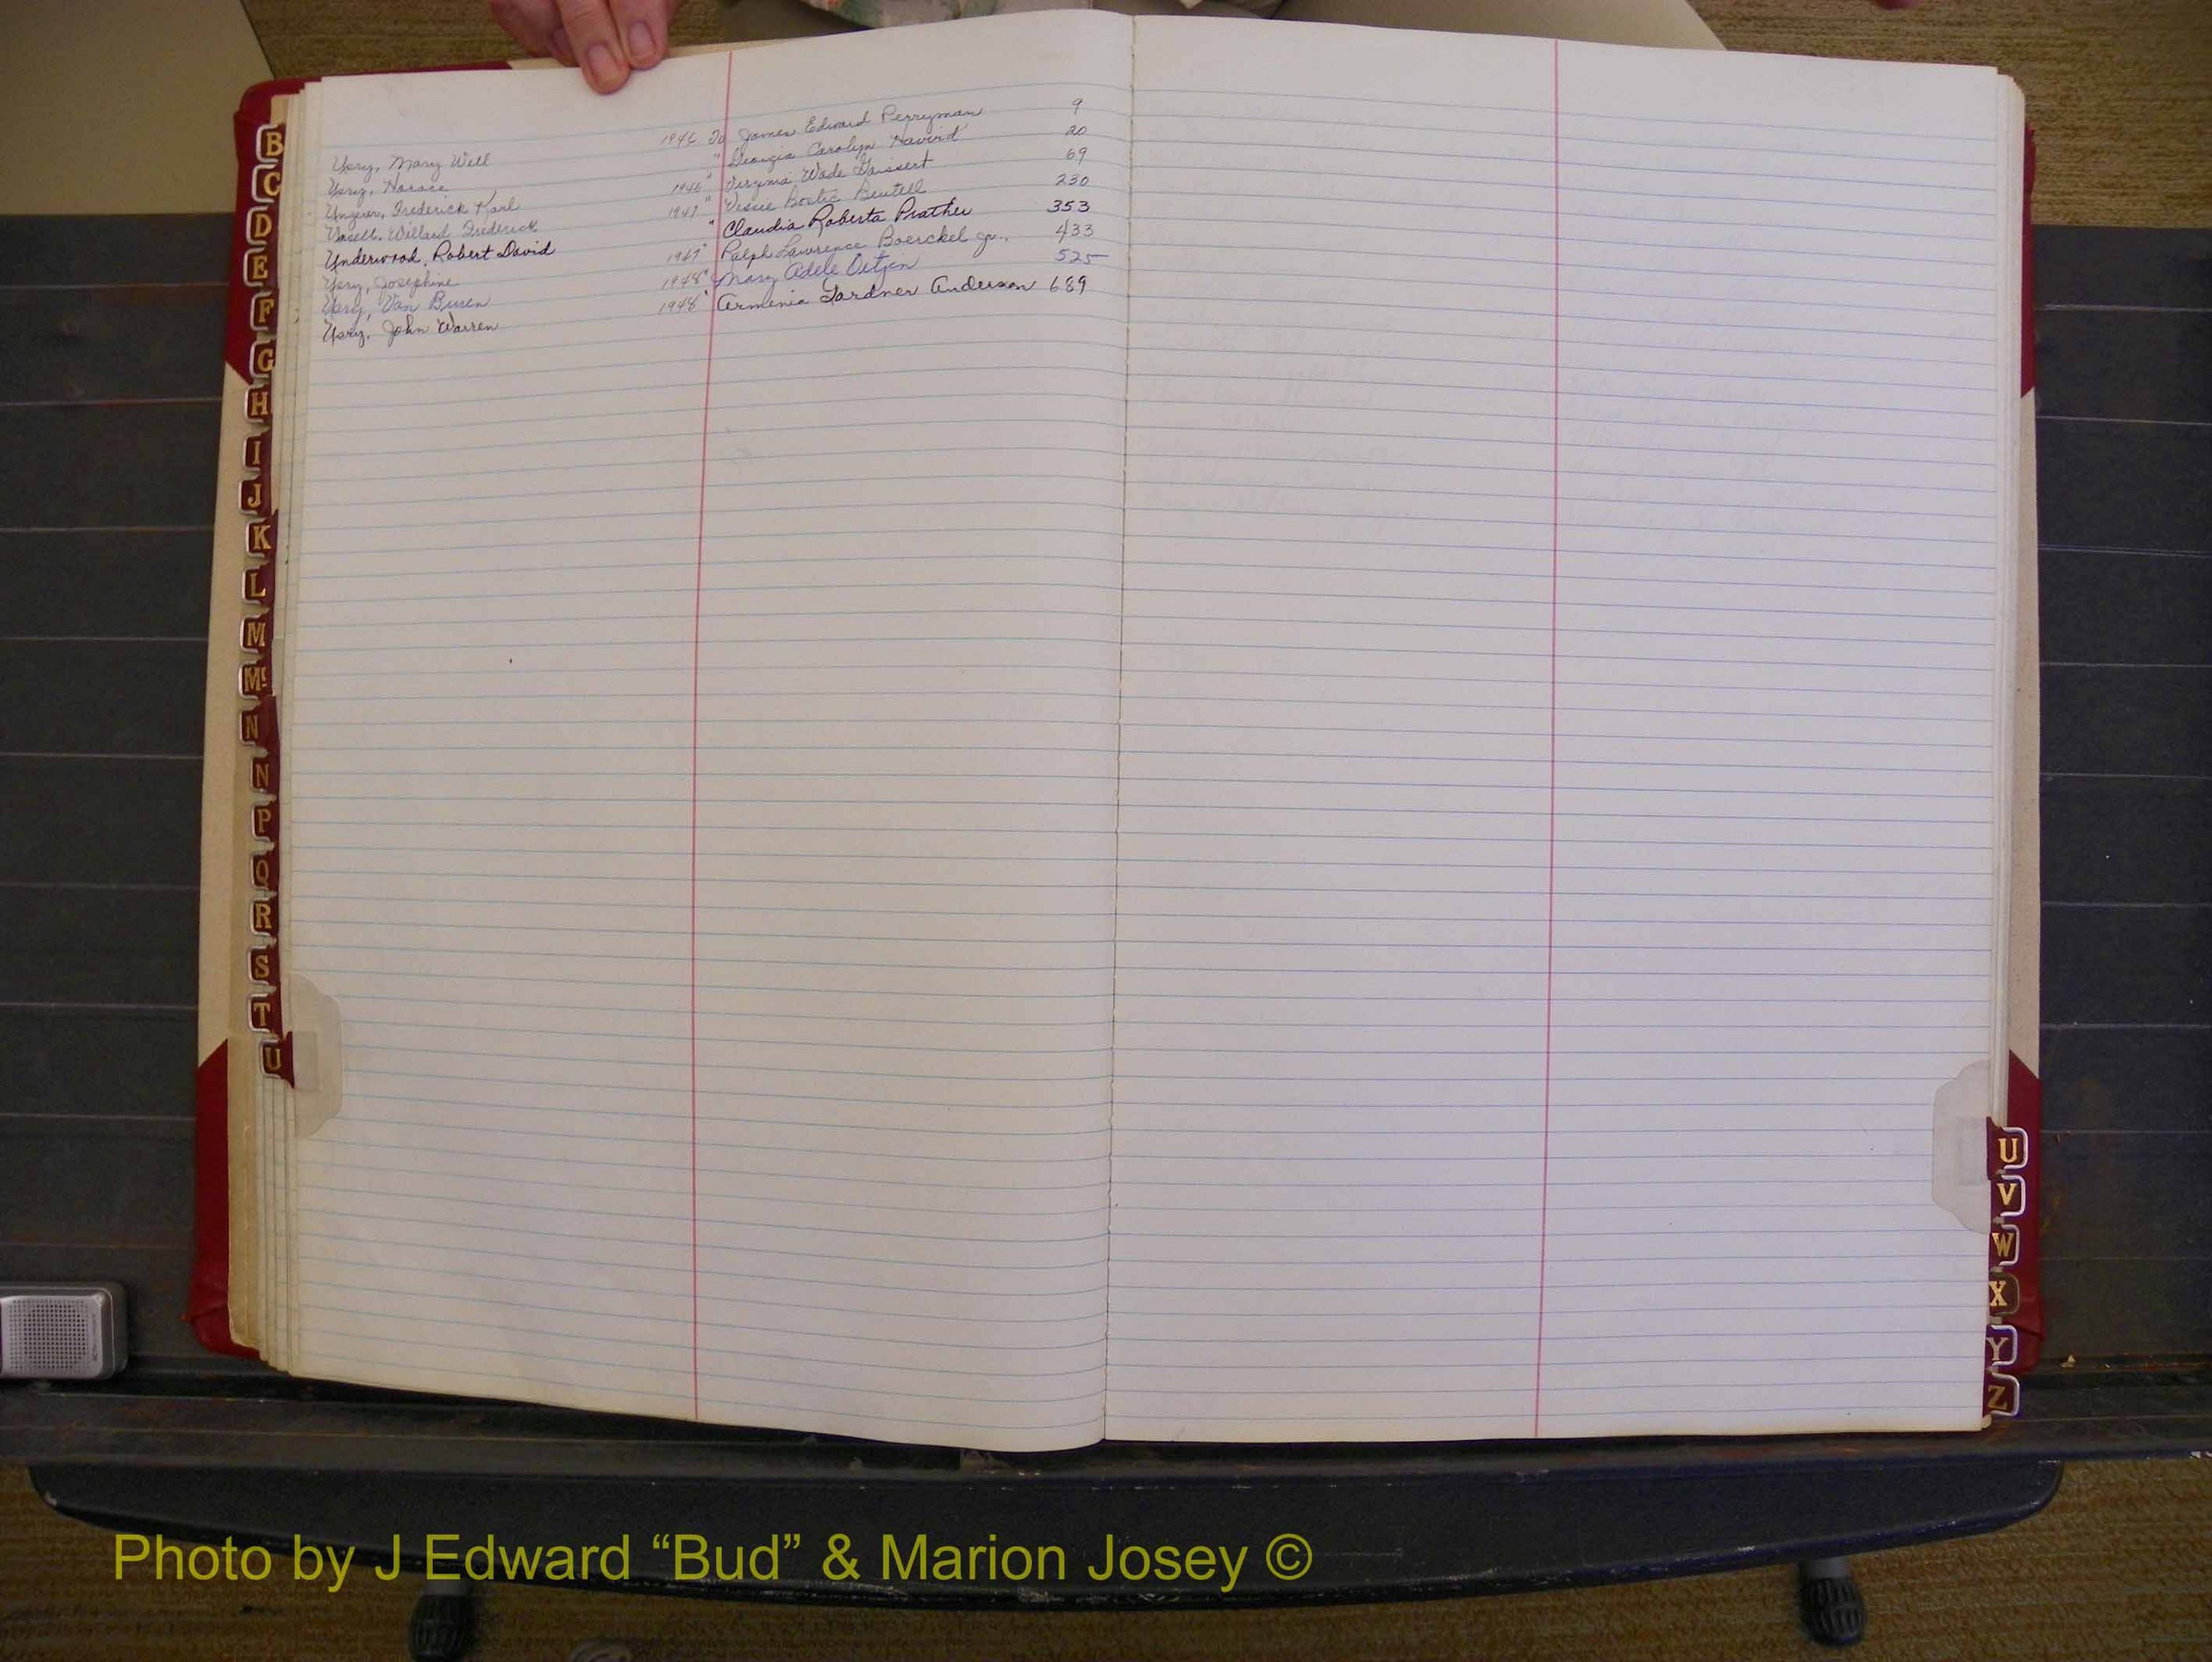 Usry, Mary Will 1946 To James Edward Perryman 9
Usry, Horace " Georgia Carolyn Havird 20
Ungerer, Frederick Karl 1946 " Virginia Wade Gaissert 69
Willard Frederick 1947 " Bostic Beutell 230
Underwood, Robert David " Claudia Roberta Prather 353
Usry, Josephine 1947 " Ralph Lawrence Boerckel Jr. 433
Usry, Van Buren 1948 " Mary Adele Oetjen 525
Usry, John Warren 1948 " Armenia Gardner Anderson 689
B
C
D
E
F
G
H
I
J
K
L
M
Mc
N
N
P
Q
R
S
T
U
U
V
W
X
Y
Z
Photo by J Edward “Bud” & Marion Josey ©